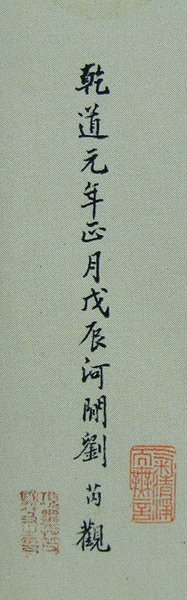 乾道元年正月戊辰河間劉芮觀